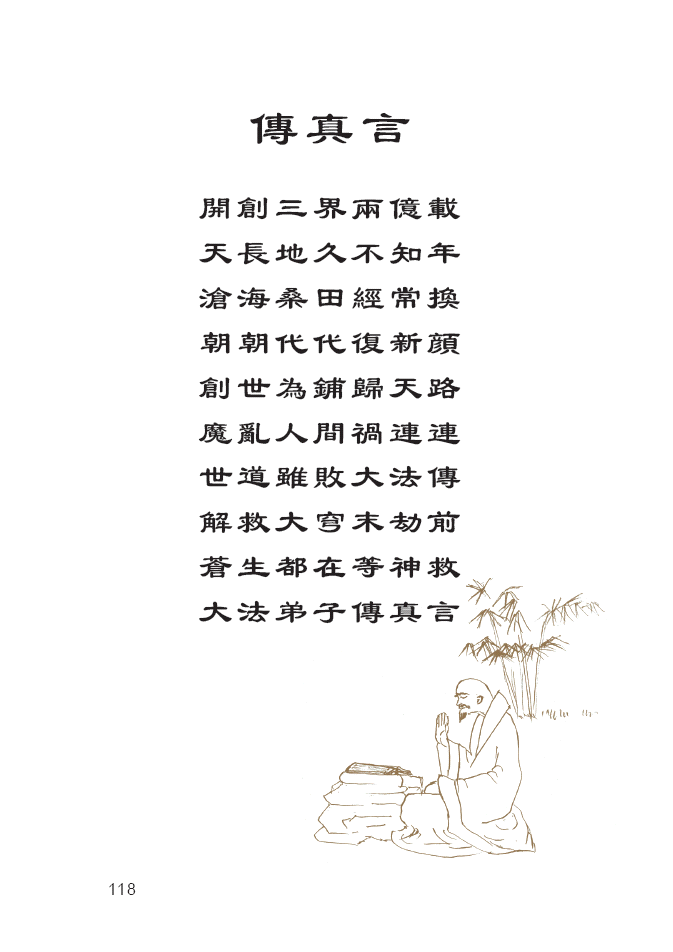 傳真言
開創三界兩億載
天長地久不知年
滄海桑田經常換
朝朝代代復新顔
創世為鋪歸天路
魔亂人間禍連連
世道雖敗大法傳
解救大穹末劫前
蒼生都在等神救
大法弟子傳真言
118